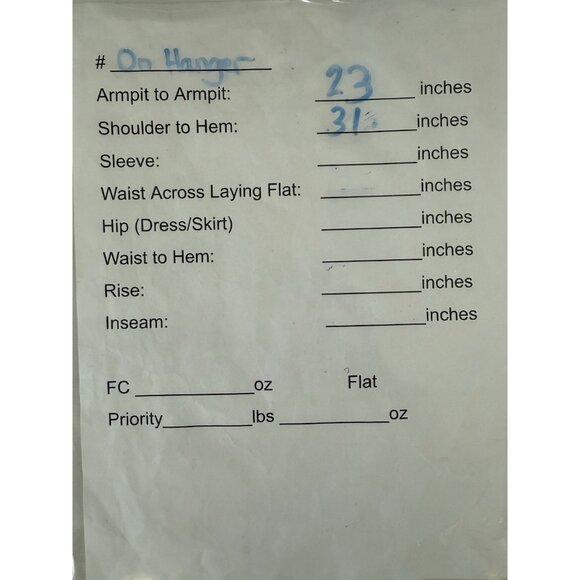 # On Hanger
Armpit to Armpit: 23 inches
Shoulder to Hem: 31 inches
Sleeve: ____________ inches
Waist Across Laying Flat: ____________ inches
Hip (Dress/Skirt) ____________ inches
Waist to Hem: ____________ inches
Rise: ____________ inches
Inseam: ____________ inches
FC ______________ oz Flat
Priority___________lbs _____________ oz